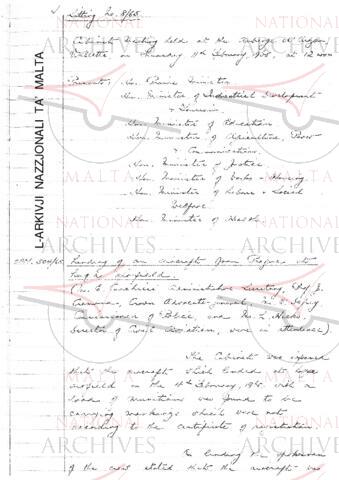 Sitting No. 8/65.
Cabinet Meeting held at the Auberge d'Aragon,
Valletta on Thursday 11th February, 1965, at 12 noon
Present: Hon. Prime Minister
Hon. Minister of Industrial Development
& Tourism
Hon. Minister of Education
Hon. Minister of Agriculture, Power
& Communications
Hon. Minister of Justice
Hon. Minister of Works & Housing
Hon. Minister of Labour & Social
Welfare
Hon. Minister of Health
L-ARKIVJI NAZZJONALI TA' MALTA
Landing of an aircraft from Prague at
Luqa Airfield.
Administrative Secretary, Prof. J.
Cremona, Crown Advocate General,
Commissioner of Police, and Mr. L.
Director of Civil Aviation, were in attendance).
The Cabinet was informed
that the aircraft which landed at Luqa
airfield on the February, 1965, with a
load of munitions was found to be
carrying markings which were not
according to the certificate of registration.
On landing the
of the crew stated that the aircraft was
NATIONAL
MALTA
ARCHIVES